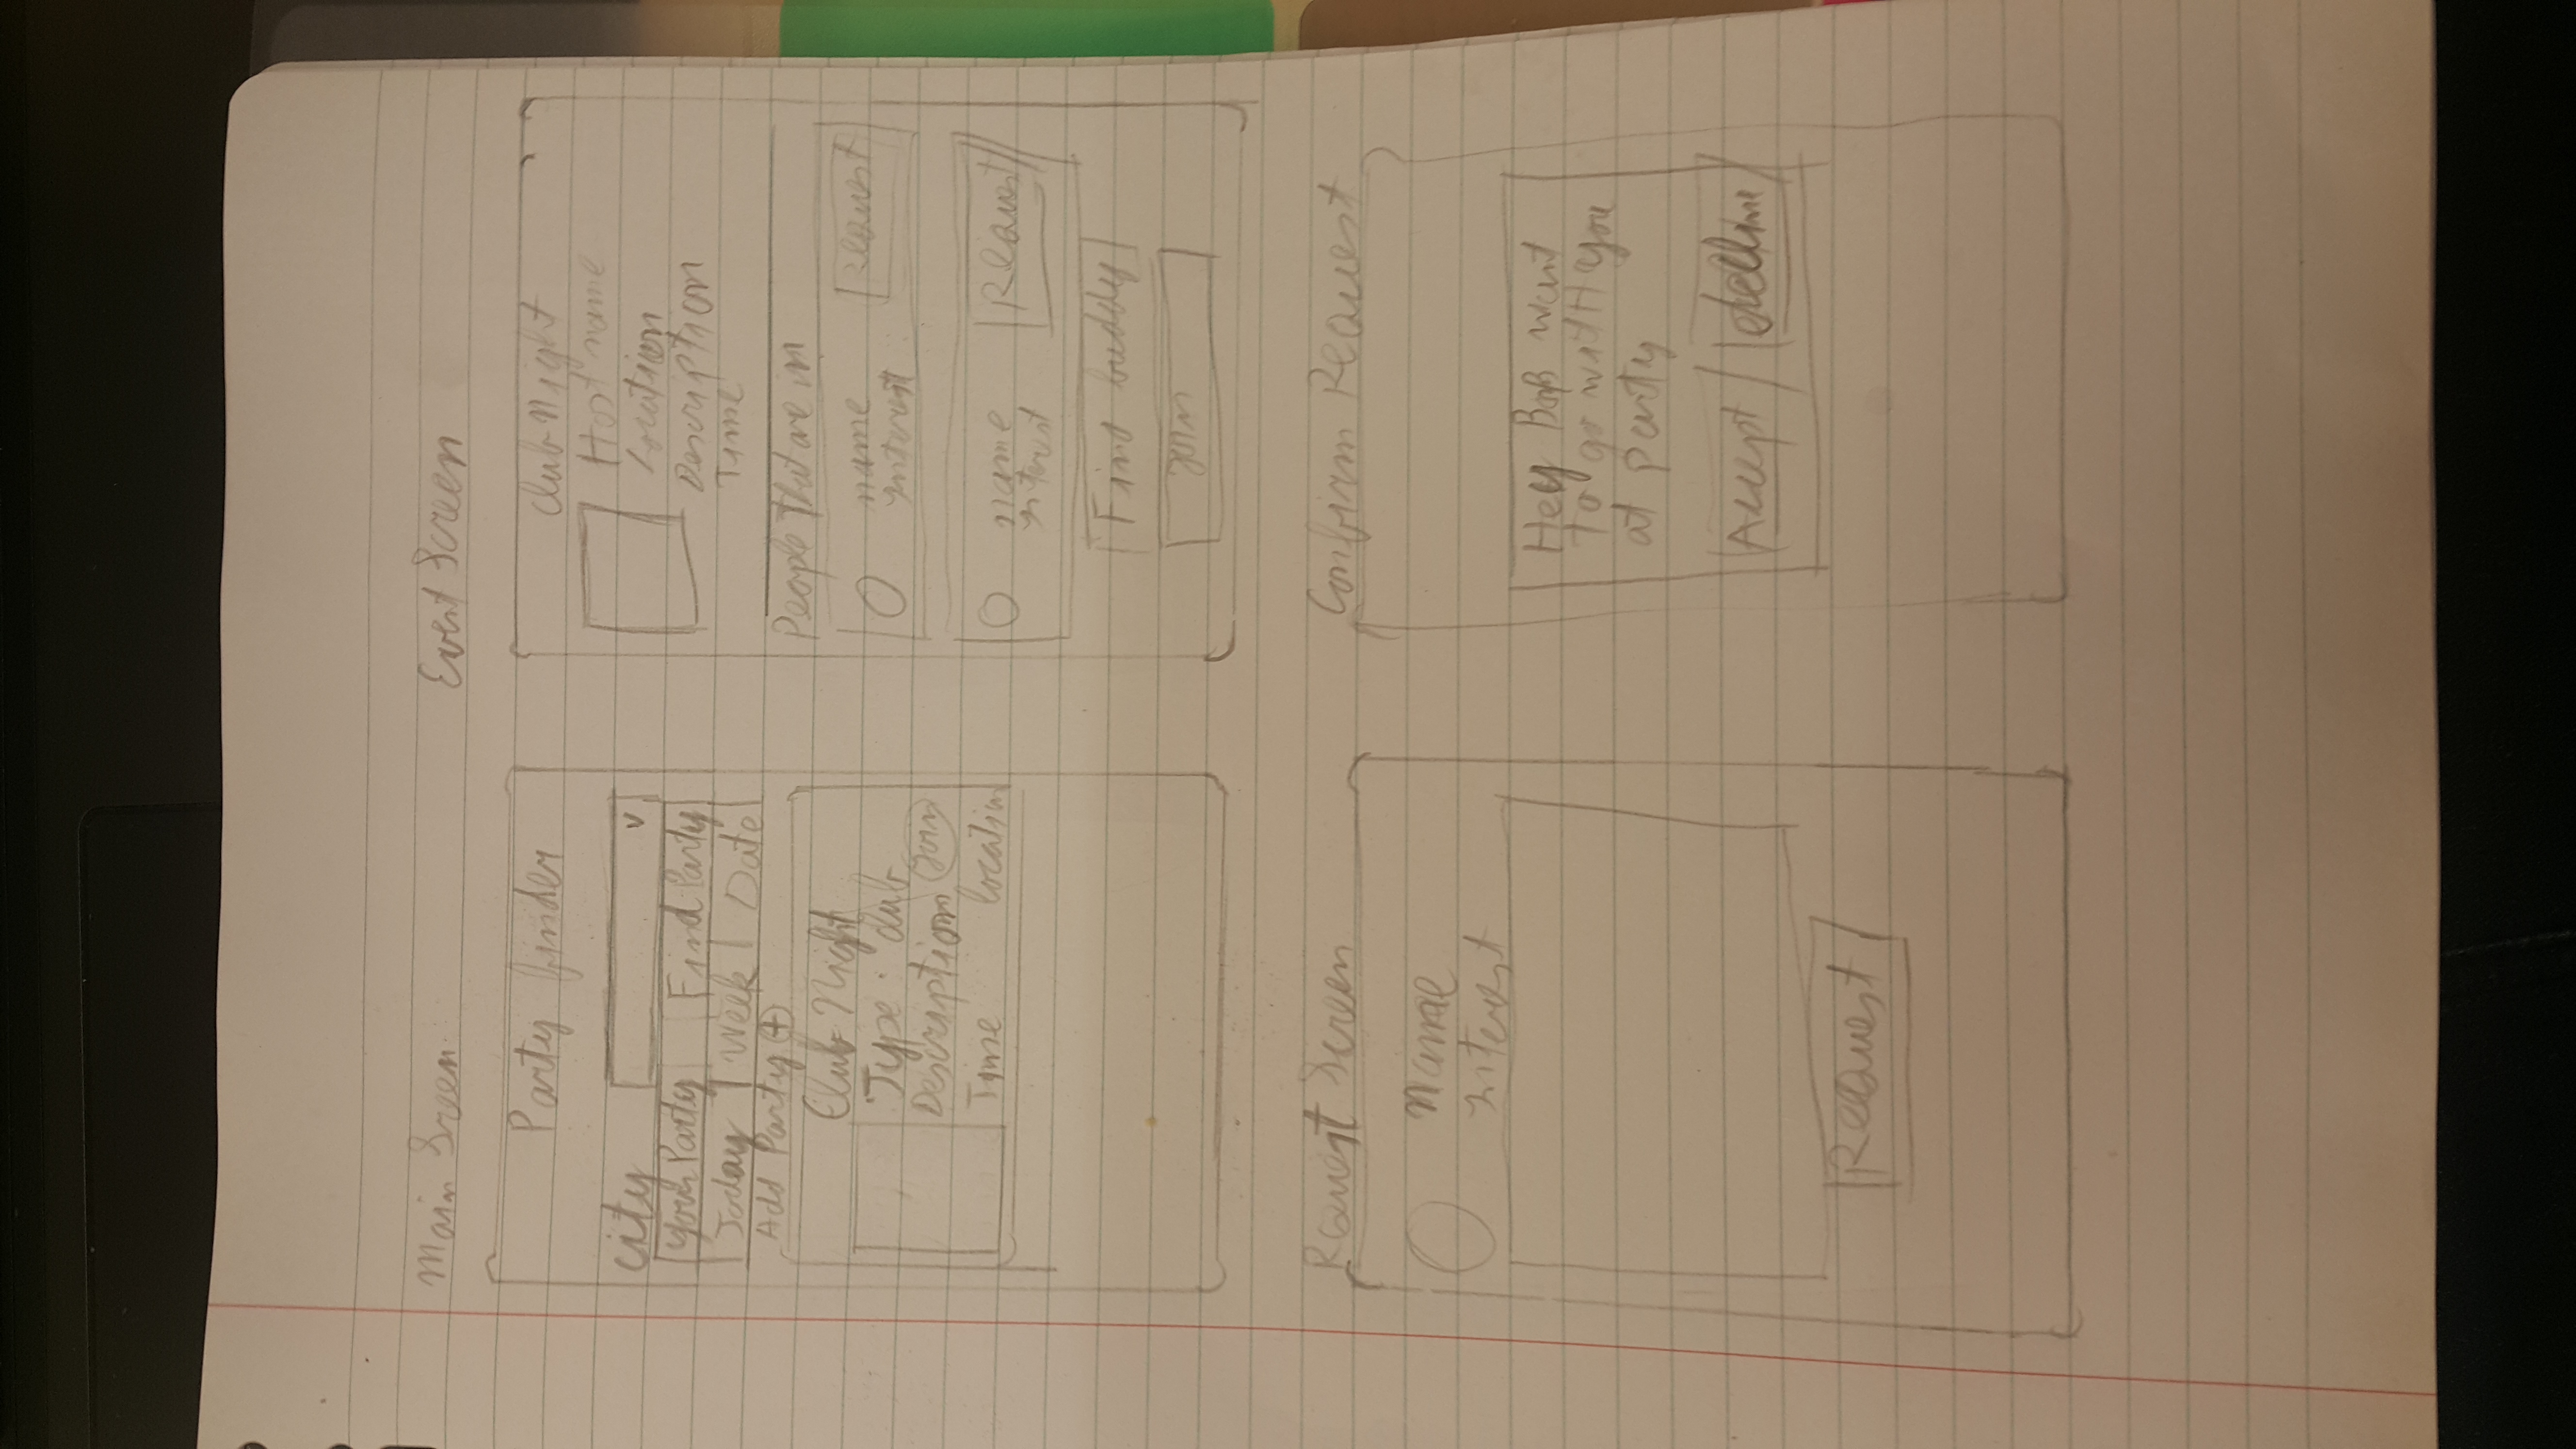 Main Sreen
Party finder
City
v
Your Party
Find Party
Today
Week
Date
Add Party +
Club Night
Type: club
Description
Join
Time
location
Event Screen
Club Night
Host name
Location
Description
Time
People that are in
name
Interest
Request
name
Interest
Request
Find buddy
Join
Request Screen
Name
Interest
Request
Confirm Request
Hey Bob want
to go with you
at party
Accept
decline